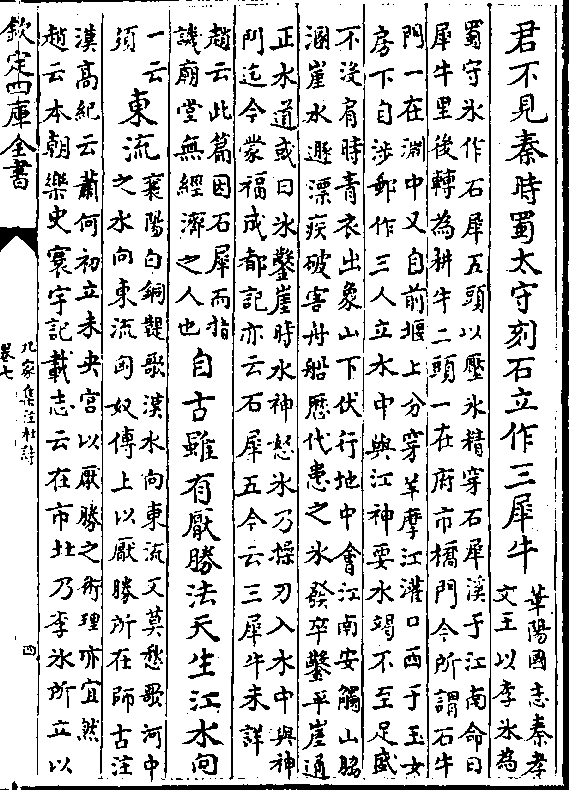 君不見秦時蜀太守刻石立作三犀牛
華陽國志秦孝
文王以李氷為
蜀守氷作石犀五頭以壓氷精穿石犀溪于江南命曰
犀牛里後轉為耕牛二頭一在府市橋門今所謂石牛
門一在淵中又自前堰上分穿羊摩江灌口西于玉女
房下自涉郵作三人立水中與江神要水竭不至足盛
不沒肩時青衣出象山下伏行地中會江南安觸山脇
溷崖水遯漂疾破害舟船歷代患之氷發卒鑿平崖通
正水道或曰氷鑿崖時水神怒氷乃操刀入水中與神
鬥迄今蒙福成都記亦云石犀五今云三犀牛未詳
趙云此篇因石犀而指
譏廟堂無經濟之人也
自古雖有厭勝法天生江水向
一云
須
東流
襄陽白銅鞮歌漢水向東流又莫愁歌河中
之水向東流匈奴傳上以厭勝所在師古注
漢高紀云蕭何初立未央宮以厭勝之術理亦宜然
趙云本朝樂史寰宇記載志云在市北乃李氷所立以
欽定四庫全書
九家集注杜詩
卷七
四